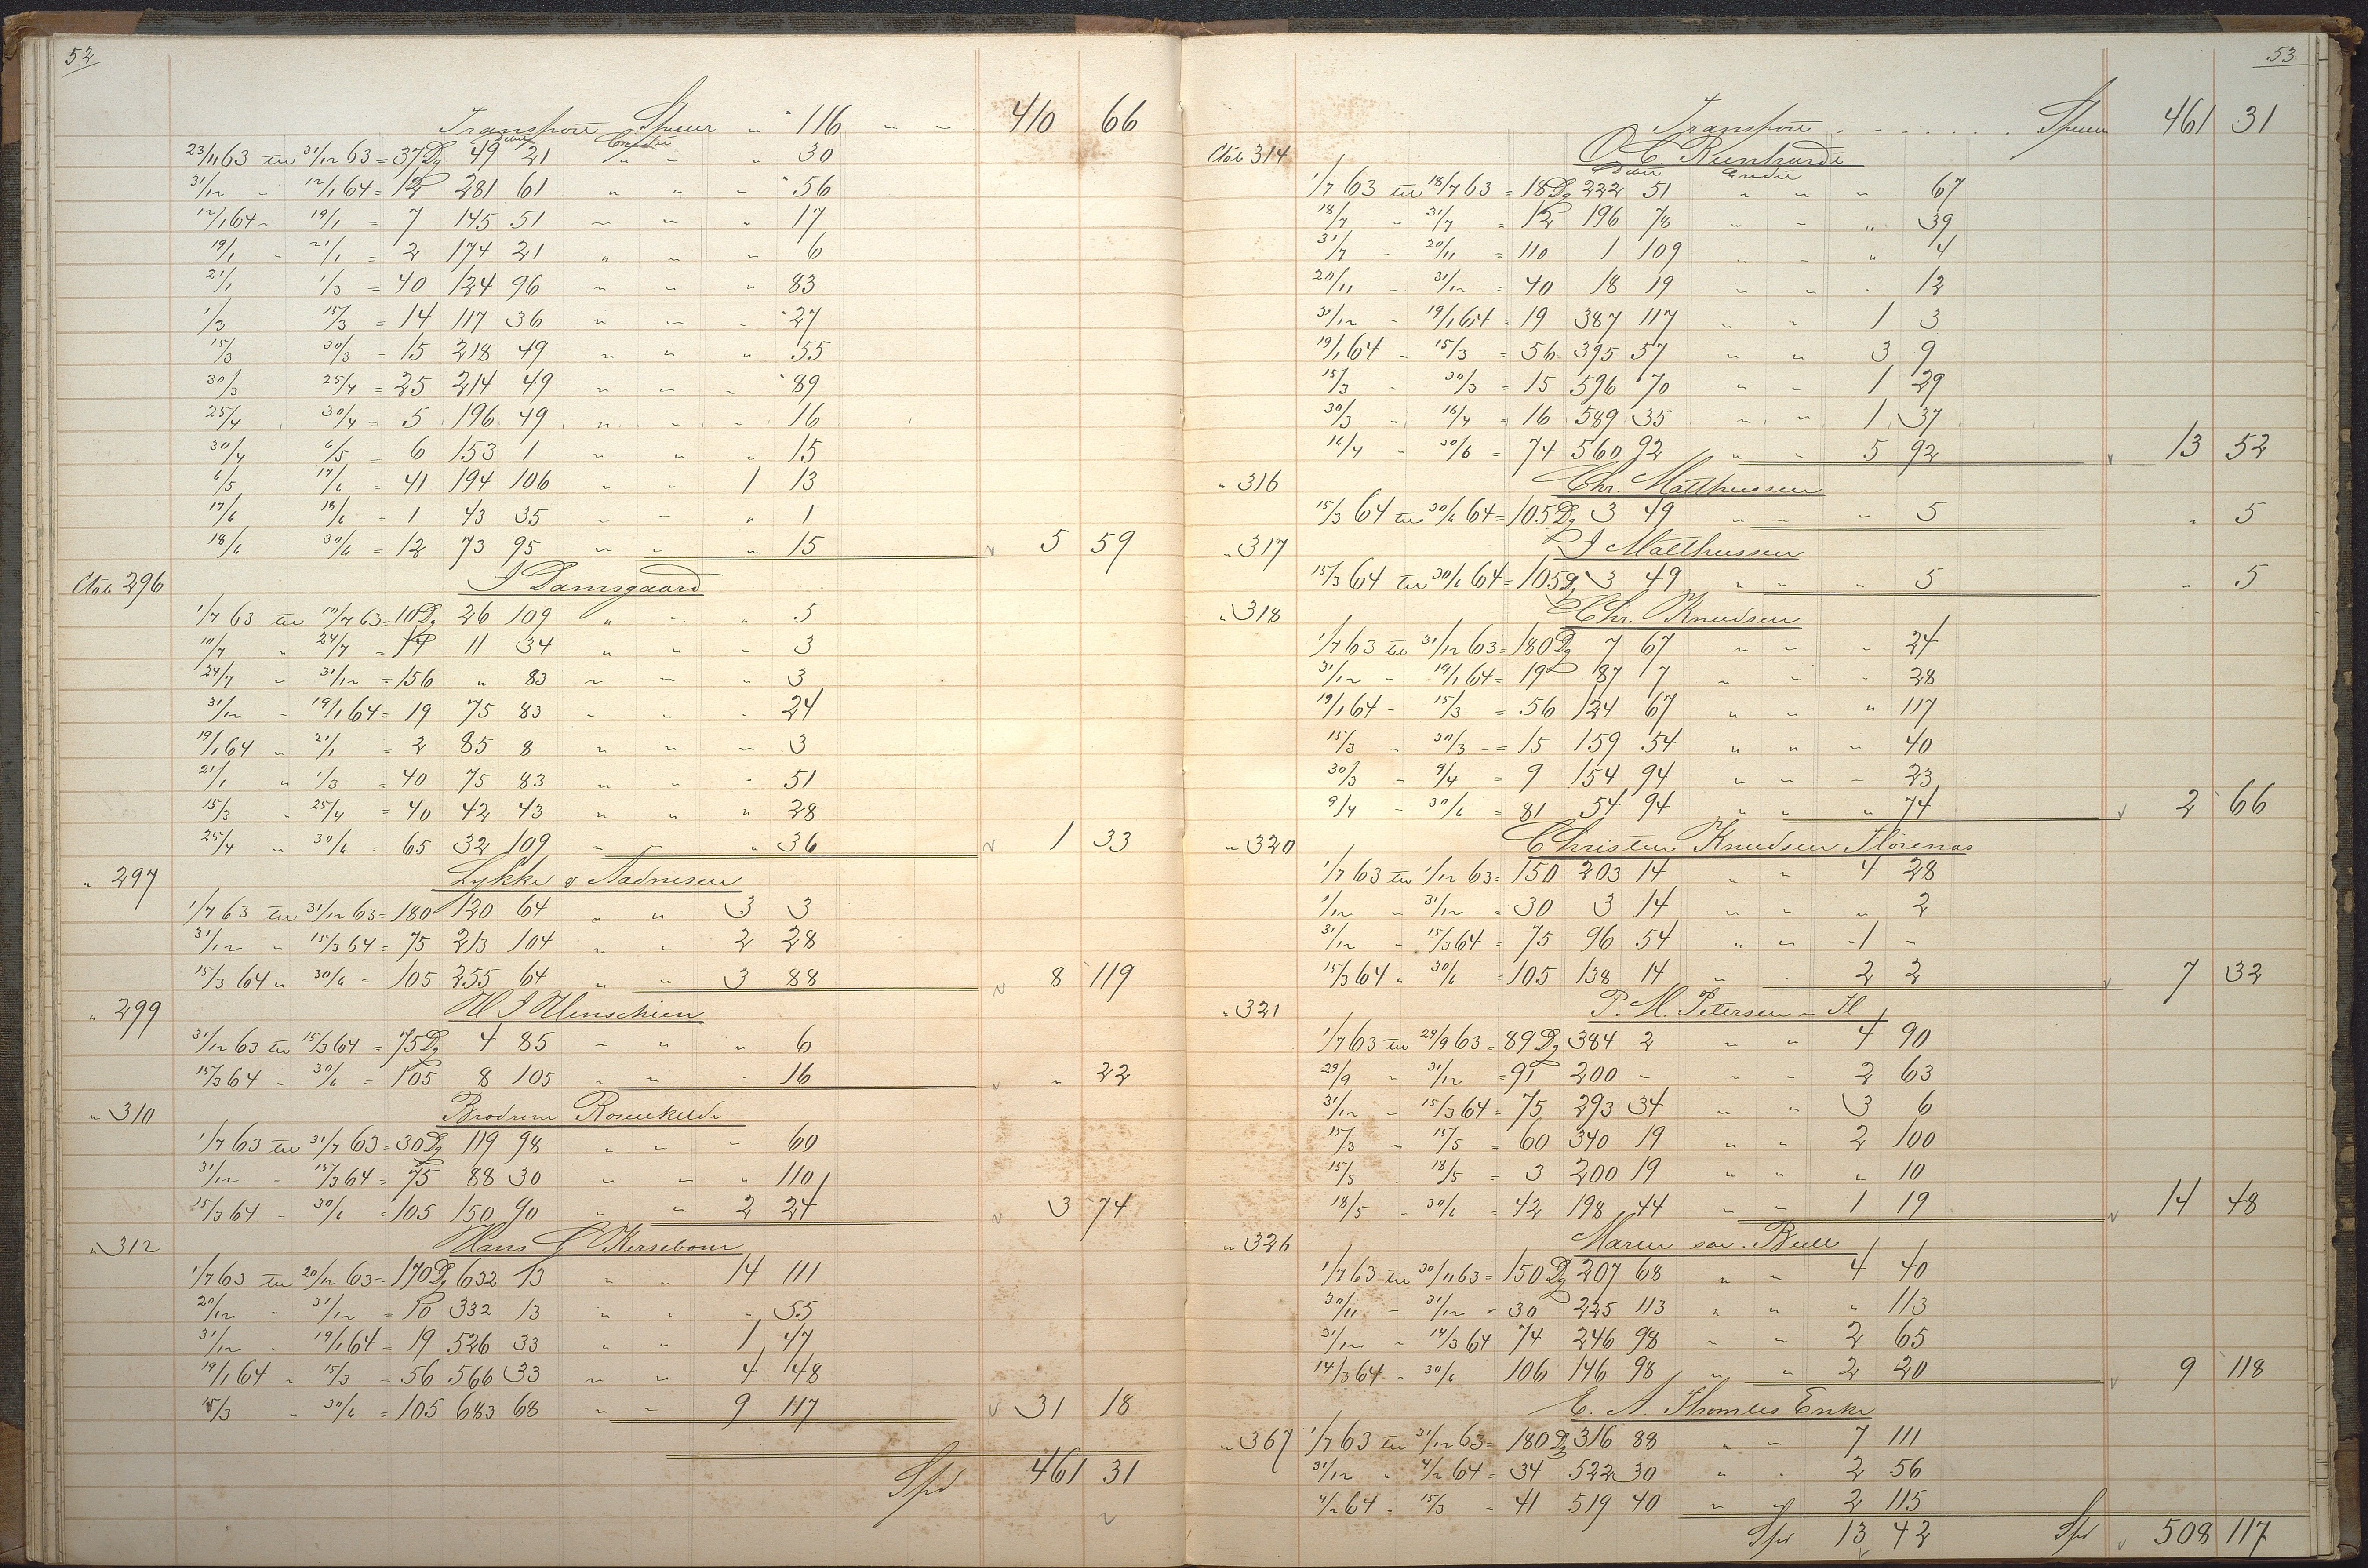 52
Transport Spuer " 116 " " 410 66
Debit Credit
23/11 63 til 31/12 63 = 37 Dg 49 21 " " " 30
31/12 " 12/1 64 = 12 281 61 " " " 56
12/1 64 - 19/1 = 7 145 51 " " " 17
19/1 - 21/1 = 2 174 21 " " " 6
21/1 1/3 = 40 124 96 " " " 83
1/3 15/3 = 14 117 36 " " " 27
15/3 30/3 = 15 218 49 " " " 55
30/3 25/4 = 25 214 49 " " " 89
25/4 30/4 = 5 196 49 " " " 16
30/4 6/5 = 6 153 1 " " " 15
6/5 17/6 = 41 194 106 " " 1 13
17/6 18/6 = 1 43 35 " " " 1
18/6 30/6 = 12 73 95 " " " 15 5 59
Cto 296 J Damsgaard
1/7 63 til 10/7 63 = 10 Dg 26 109 " " " 5
10/7 " 24/7 = 14 11 34 " " " 3
24/7 " 31/12 = 156 " 83 " " " 3
31/12 - 19/1 64 = 19 75 83 " " " 24
19/1 64 " 21/1 = 2 85 8 " " " 3
21/1 " 1/3 = 40 75 83 " " " 51
15/3 " 25/4 = 40 42 43 " " " 28
25/4 " 30/6 = 65 32 109 " " " 36 1 33
" 297 Lykke & Aadnesen
1/7 63 til 31/12 63 = 180 120 64 " " 3 3
31/12 " 15/3 64 = 75 213 104 " " 2 28
15/3 64 " 30/6 = 105 255 64 " " 3 88 8 119
" 299 H J Henschien
31/12 63 til 15/3 64 = 75 Dg 4 85 " " " 6
15/3 64 - 30/6 = 105 8 105 " " " 16 " 22
" 310 Brødrene Rosenkilde
1/7 63 til 31/7 63 = 30 Dg 119 98 " " " 60
31/12 - 15/3 64 = 75 88 30 " " " 110
15/3 64 - 30/6 = 105 150 90 " " 2 24 3 74
" 312 Hans G Kersebom
1/7 63 til 20/12 63 = 170 Dg 632 13 " " 14 111
20/12 - 31/12 = 10 332 13 " " " 55
31/12 - 19/1 64 = 19 526 33 " " 1 47
19/1 64 " 15/3 = 56 566 33 " " 4 48
15/3 " 30/6 = 105 683 68 " " 9 117 31 18
Spd 461 31
53
Transport . . . . . Spuer 461 31
Cto 314 O. C. Reinhardt
Debit Credit
1/7 63 til 18/7 63 = 18 Dg 222 51 " " " 67
18/7 " 31/7 = 12 196 78 " " " 39
31/7 - 20/11 = 110 1 109 " " " 4
20/11 - 31/12 = 40 18 19 " " " 12
31/12 - 19/1 64 = 19 387 117 " " 1 3
19/1 64 - 15/3 = 56 395 57 " " 3 9
15/3 - 30/3 = 15 596 70 " " 1 29
30/3 - 16/4 = 16 589 35 " " 1 37
16/4 - 30/6 = 74 560 92 " " 5 92 13 52
" 316 Chr. Malthussen
15/3 64 til 30/6 64 = 105 Dg 3 49 " " " 5 " 5
" 317 J Malthussen
15/3 64 til 30/6 64 = 105 Dg 3 49 " " " 5 " 5
" 318 Chr. Knudsen
1/7 63 til 31/12 63 = 180 Dg 7 67 " " " 24
31/12 - 19/1 64 = 19 187 7 " " " 28
19/1 64 - 15/3 = 56 124 67 " " " 117
15/3 - 30/3 = 15 159 54 " " " 40
30/3 - 9/4 = 9 154 94 " " " 23
9/4 - 30/6 = 81 54 94 " " " 74 2 66
" 320 Christen Knudsen Hørenas
1/7 63 til 1/12 63 = 150 203 14 " " 4 28
1/12 " 31/12 = 30 3 14 " " " 2
31/12 - 15/3 64 = 75 96 54 " " 1 "
15/3 64 " 30/6 = 105 138 14 " " 2 2 7 32
" 321 P. M. Petersen - Fl
1/7 63 til 29/9 63 = 89 Dg 384 2 " " 4 90
29/9 " 31/12 = 91 200 - " " 2 63
31/12 - 15/3 64 = 75 293 34 " " 3 6
15/3 " 15/5 = 60 340 19 " " 2 100
15/5 - 18/5 = 3 200 19 " " " 10
18/5 - 30/6 = 42 198 44 " " 1 19 14 48
" 326 Maren sal. Bull
1/7 63 til 30/11 63 = 150 Dg 207 68 " " 4 40
30/11 - 31/12 = 30 225 113 " " " 113
31/12 " 14/3 64 74 246 98 " " 2 65
14/3 64 - 30/6 106 146 98 " " 2 20 9 118
E. A. Thomles Enke
" 367 1/7 63 til 31/12 63 = 180 Dg 316 88 " " 7 111
31/12 - 4/2 64 = 34 522 30 " " 2 56
4/2 64 - 15/3 = 41 519 40 " " 2 115
Spd 13 42 Spd 508 117